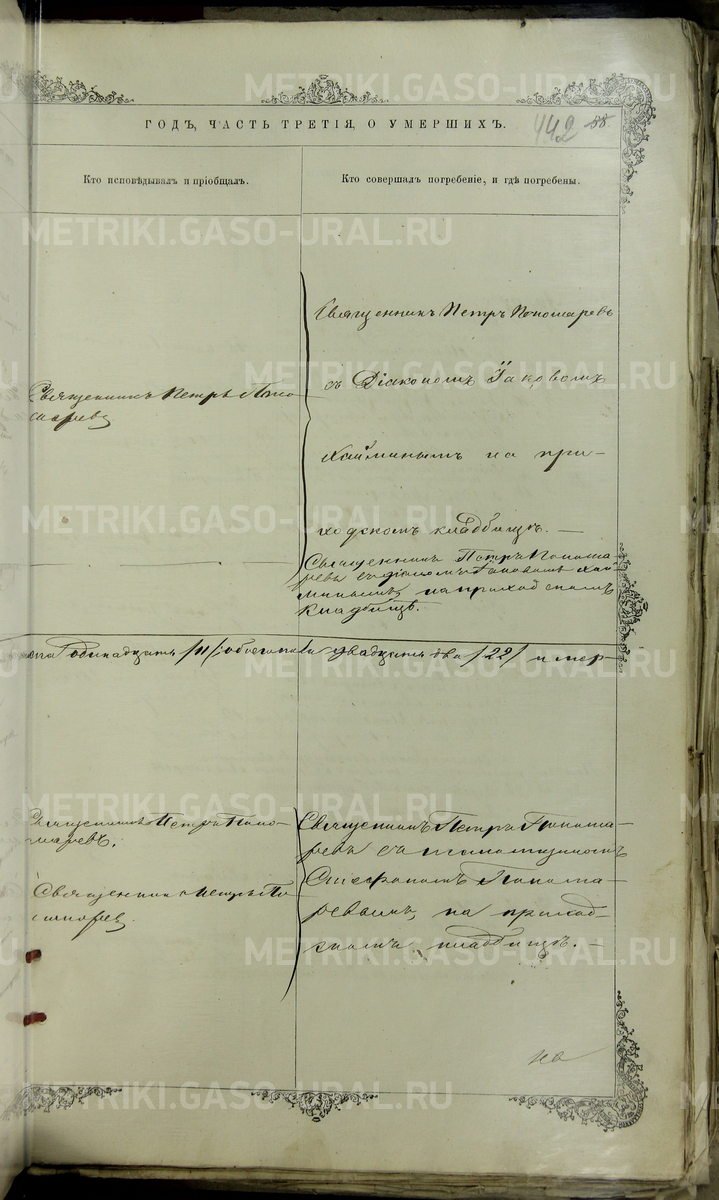 ГОДЪ, ЧАСТЬ ТРЕТІЯ, О УМЕРШИХЪ.
442 88
Кто исповѣдывалъ и пріобщалъ.
Кто совершалъ погребеніе, и гдѣ погребены.
Священникъ Петръ Поно
маревъ
Священникъ Петръ Пономаревъ
съ Діакономъ Іаковомъ
на при–
ходскомъ кладбищѣ. —
Священникъ Петръ Понома
ревъ съ діакономъ Іаковомъ
на приходскомъ
кладбищѣ.
одинадцать /11/ обоего пола двадцать два /22/ умер–
Священникъ Петръ Поно–
маревъ.
Священникъ Петръ По
номарев
Священникъ Петръ Понома–
ревъ съ псаломщикомъ
Стефаномъ Понома–
ревымъ, на приход–
скомъ кладбищѣ. —
на
METRIKI.GASO-URAL.RU